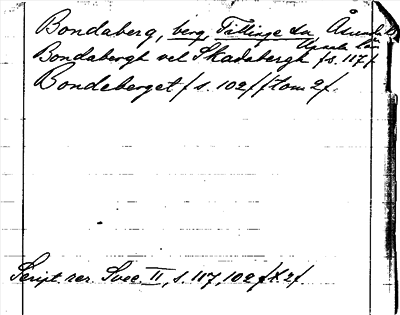 Bondaberg, berg, Tillinge sn, Åsunda
Upsala län
Bondabergh vel Skadabergh /s. 117/
Bondeberget / s. 102 / /tom 2/.
Script rer. Svec. II, s. 117, 102 /t. 2/.